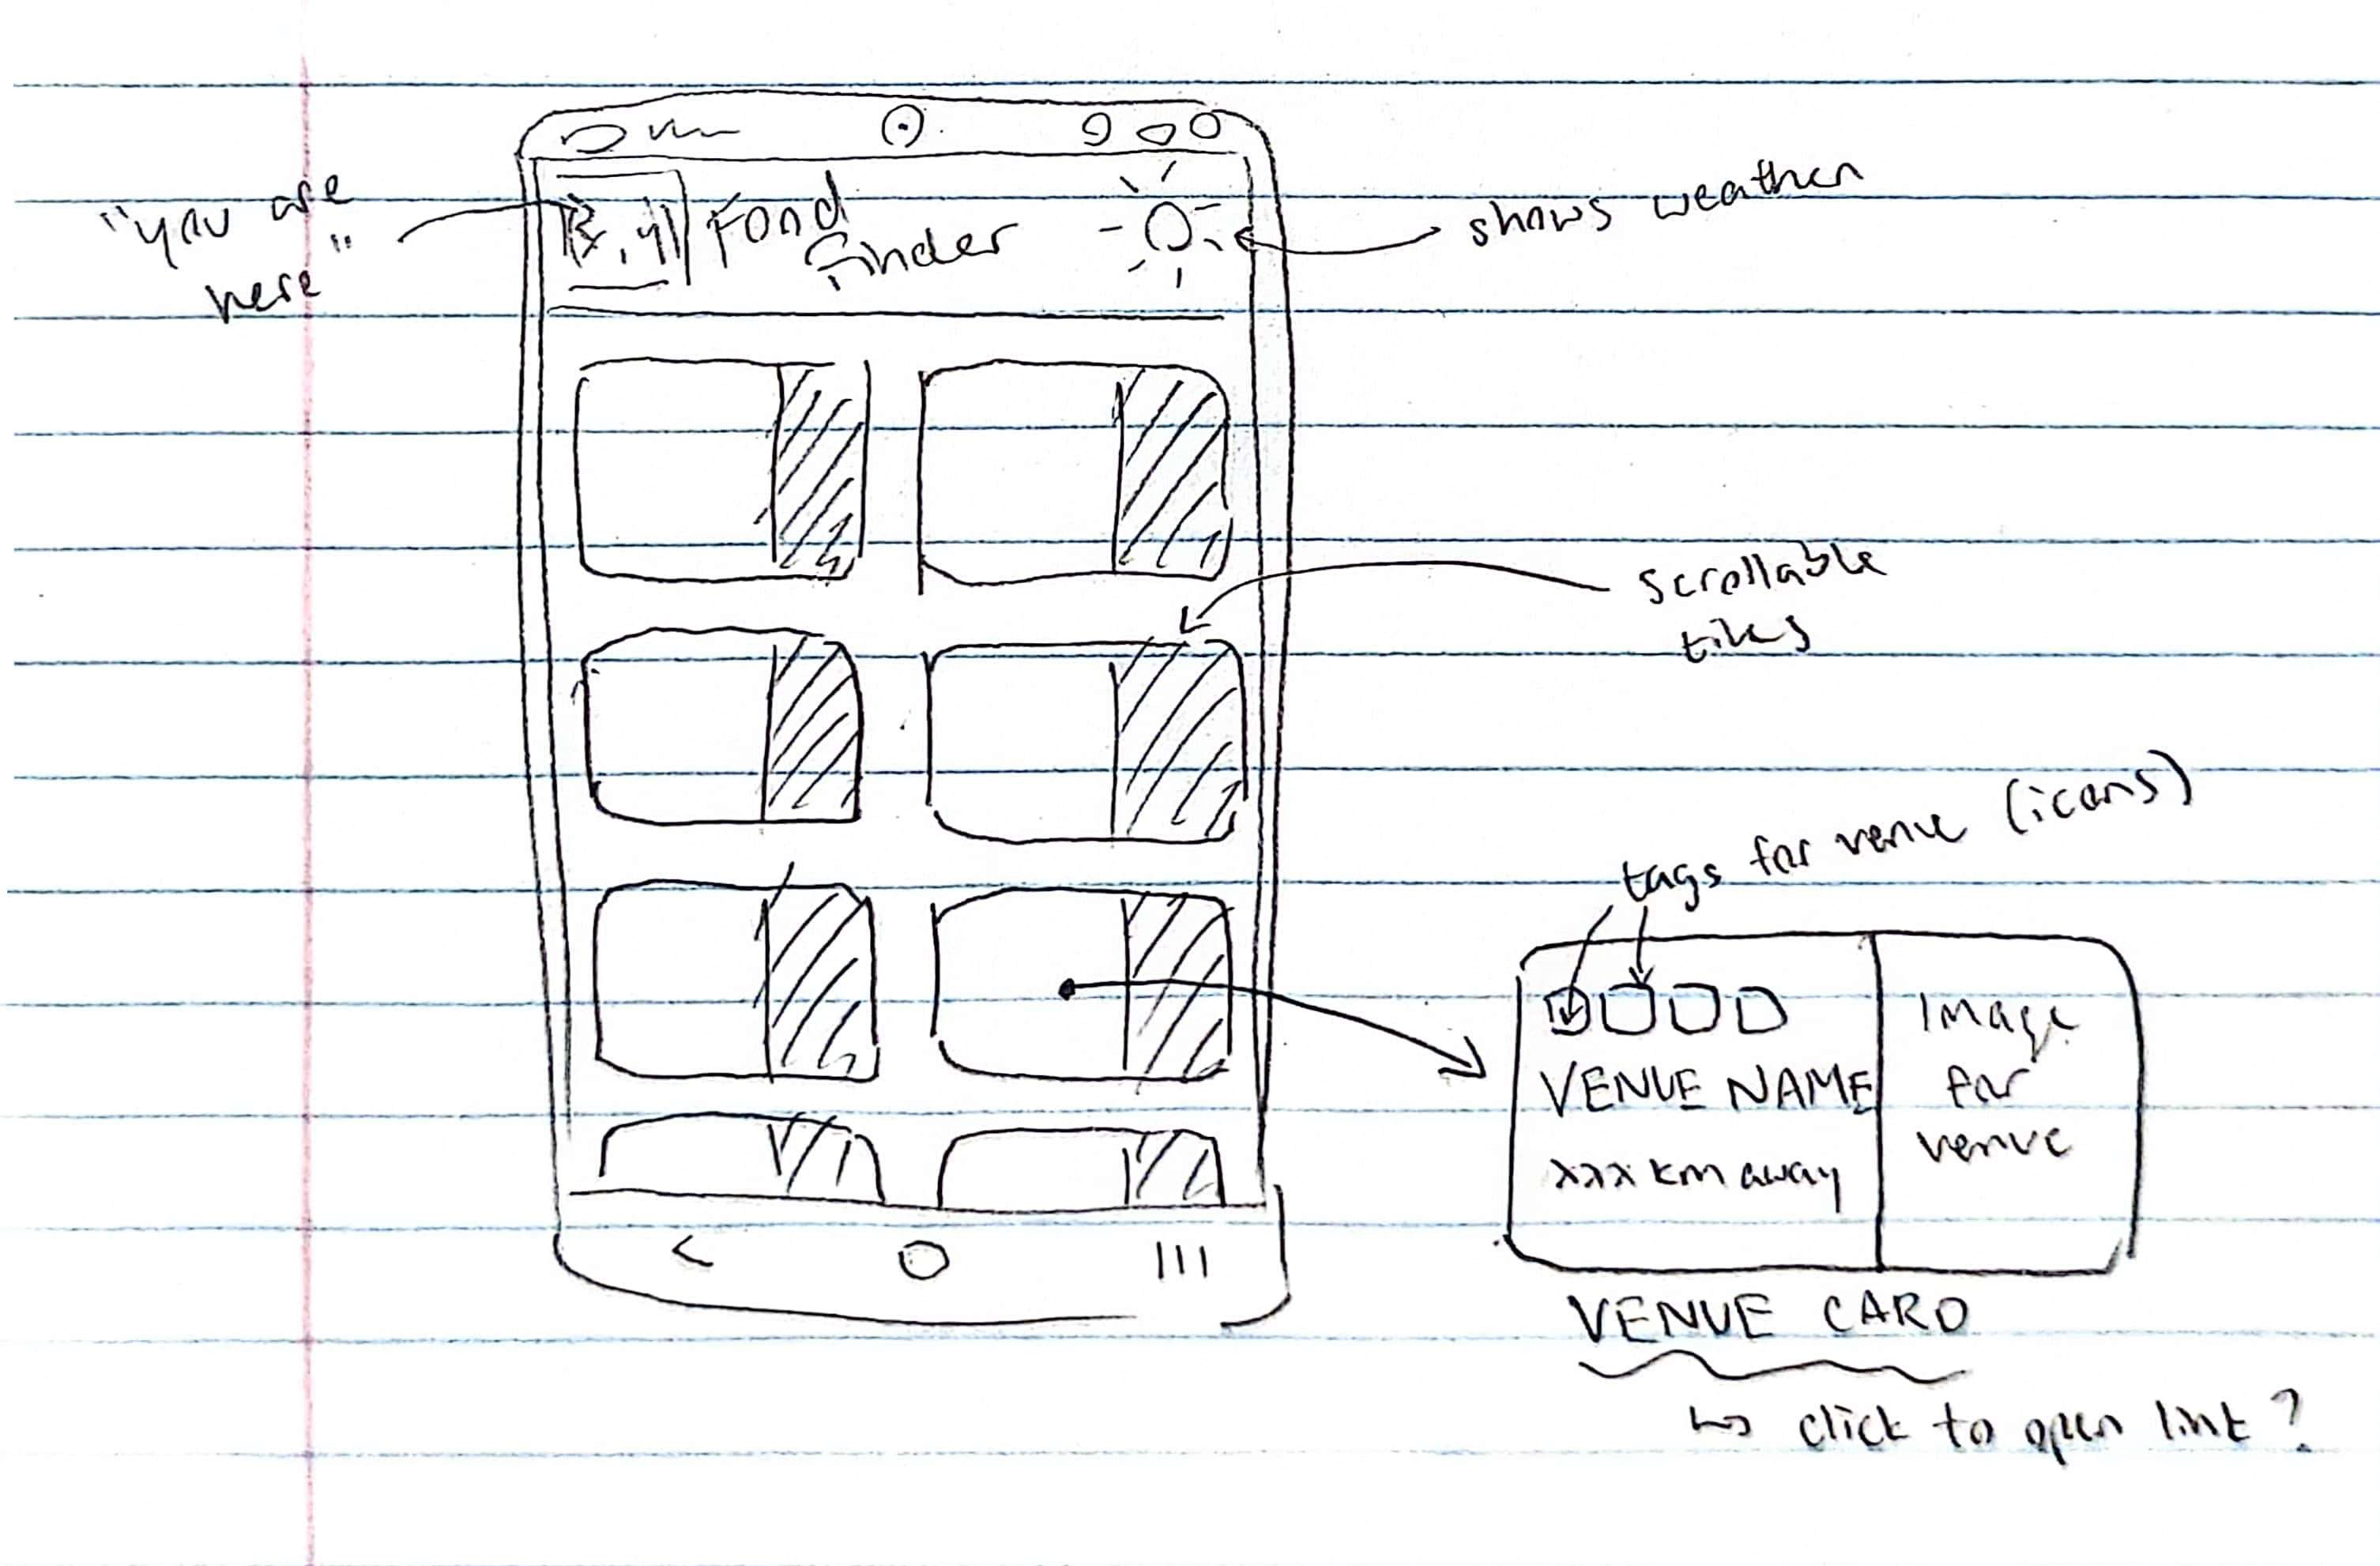 "you are
here"
x, y
Food
Finder
shows weather
scrollable
tiles
tags for venue (icons)
VENUE NAME
xxx km away
Image
for
venue
VENUE CARD
↳ click to open link?